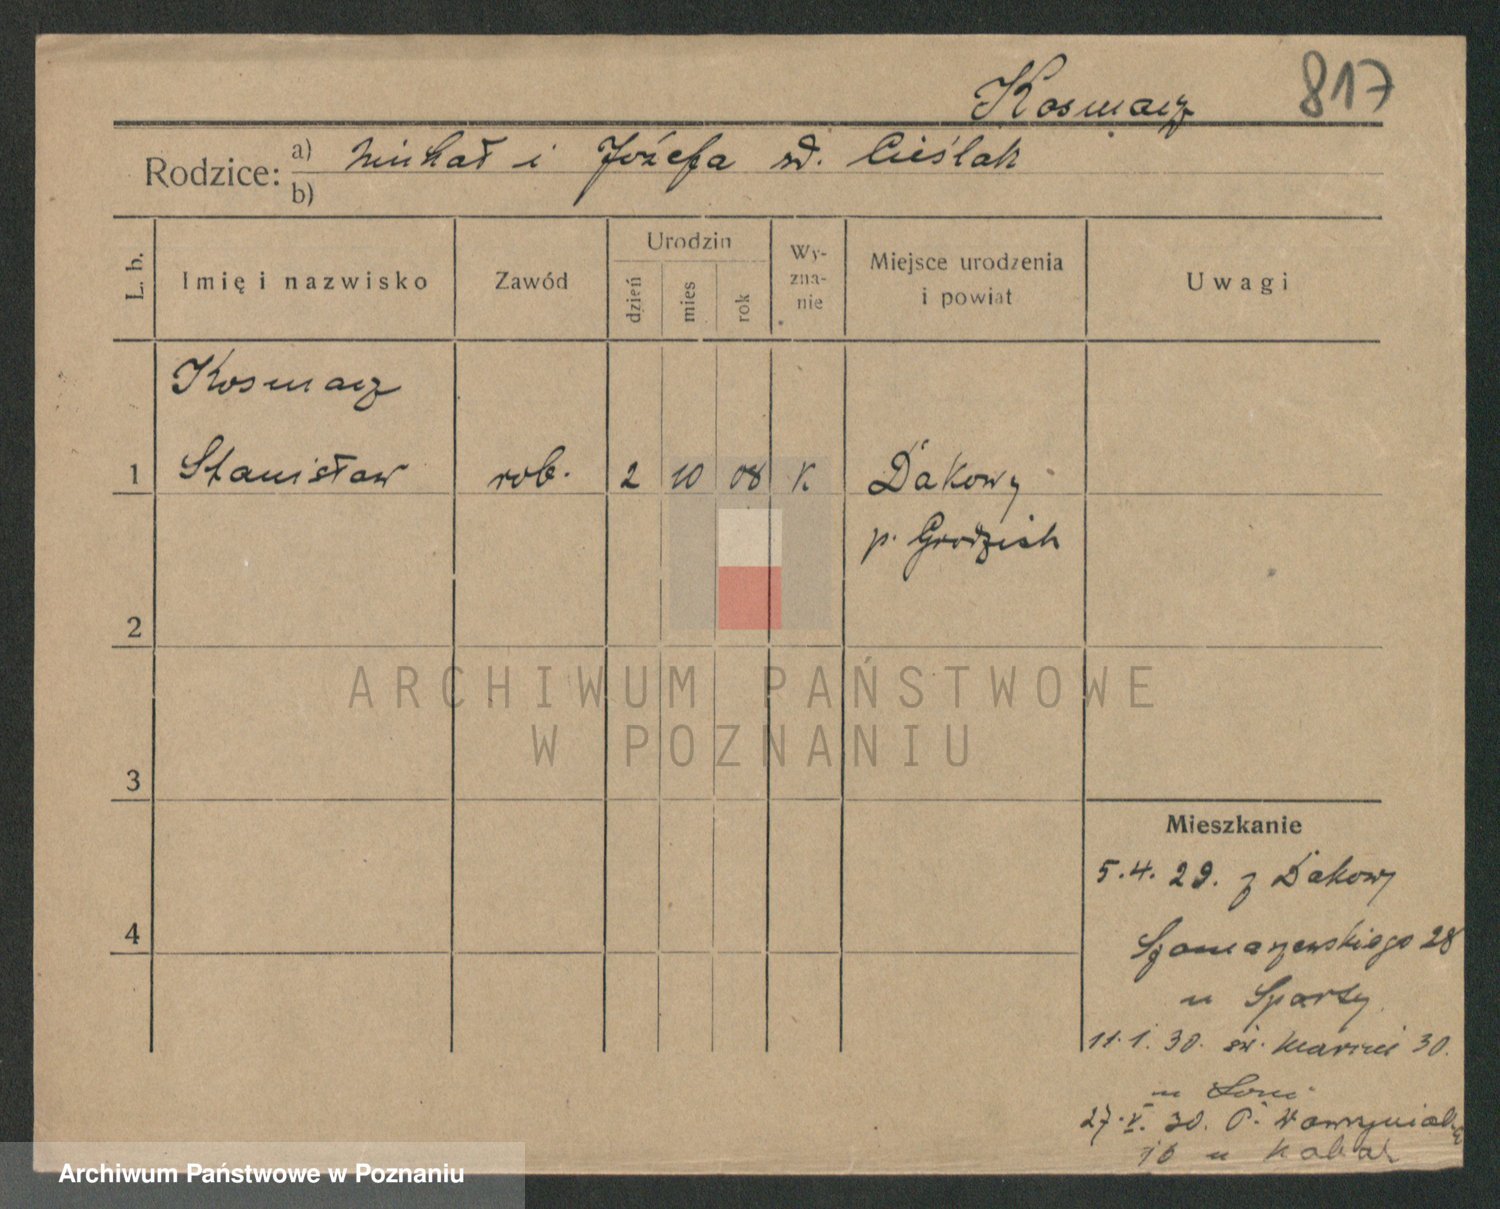 Kosmacz 817
Rodzice: a) Michał i Józefa zd. Cieślak
b)
L. b. Imię i nazwisko Zawód Urodzin dzień mies rok Wy-zna-nie Miejsce urodzenia i powiat Uwagi
Kosmacz
1 Stanisław rob. 2 10 08 K Dakowy
p. Grodzisk
2
ARCHIWUM PAŃSTWOWE
W POZNANIU
3
Mieszkanie
5.4.29. z Dakowy
4
Szamarzewskiego 28
u
11.1.30. św. Marcin 30.
u
27.V.30. P. Wawrzyniaka
16 u
Archiwum Państwowe w Poznaniu